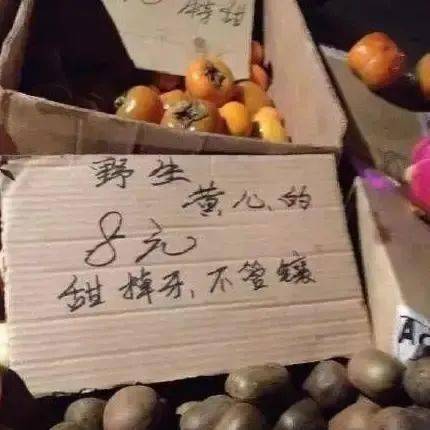 特甜
野生
黄心的
8元
甜掉牙、不管镶